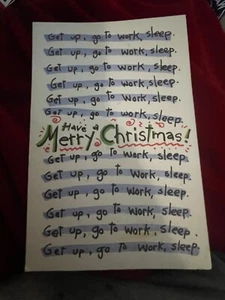 Get up, go to work, sleep.
Get up, go to work, sleep.
Get up, go to work, sleep.
Get up, go to work, sleep.
Get up, go to work, sleep.
Get up, go to work, sleep.
Have a
Merry Christmas!
Get up, go to work, sleep.
Get up, go to work, sleep.
Get up, go to work, sleep.
Get up, go to work, sleep.
Get up, go to work, sleep.
Get up, go to work, sleep